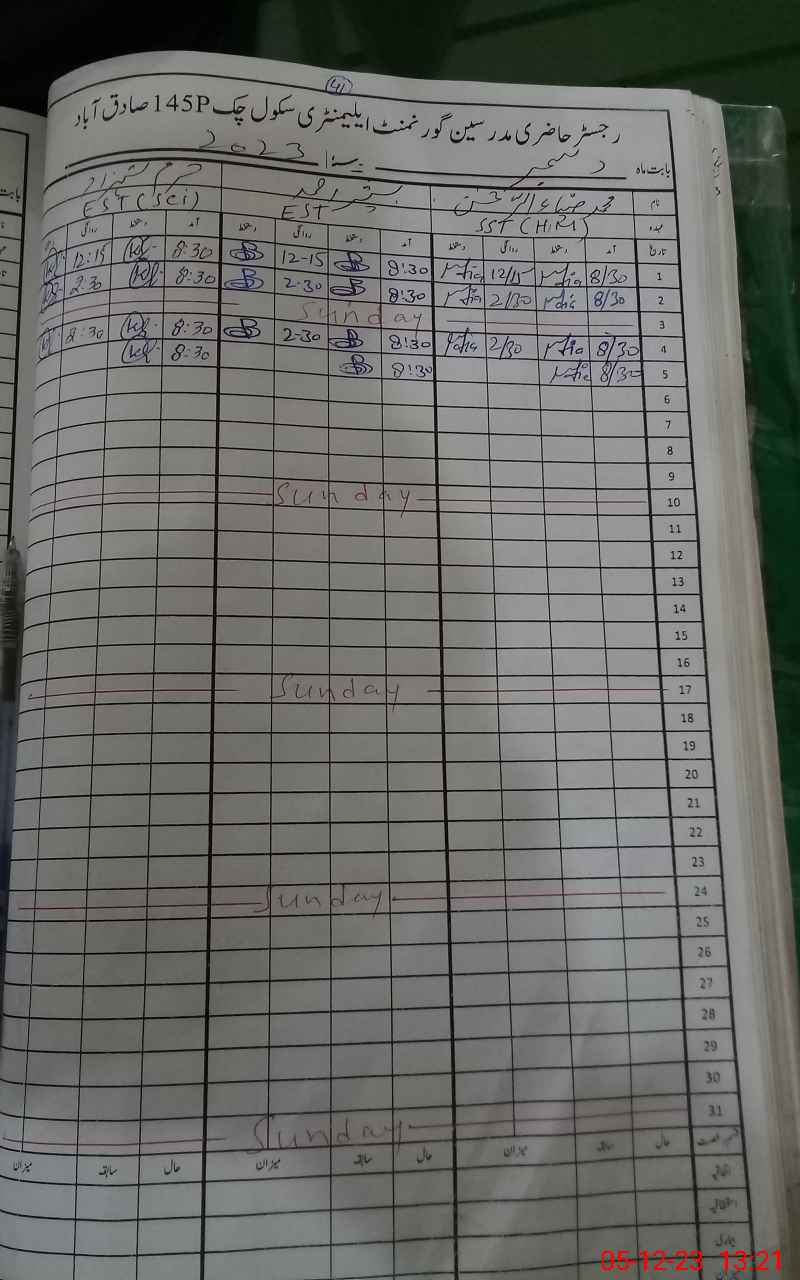 41
رجسٹر حاضری مدرسین گورنمنٹ ایلیمنٹری سکول چک 145P صادق آباد
بابت ماہ دسمبر 2023
نام محمد ضیاء
عہدہ SST (H.M) EST EST (Sci)
تاریخ آمد دستخط روانگی دستخط آمد دستخط روانگی دستخط آمد دستخط روانگی
1 8/30 12/15 8:30 12-15 8:30 12:15
2 8/30 2/30 8:30 2-30 8:30 2:30
3 Sunday
4 8/30 2/30 8:30 2-30 8:30 2:30
5 8/30 8:30 8:30
6
7
8
9
10 Sunday
11
12
13
14
15
16
17 Sunday
18
19
20
21
22
23
24 Sunday
25
26
27
28
29
30
31 Sunday
حال سابقہ میزان حال سابقہ میزان حال سابقہ میزان
اتفاقیہ
استحقاقی
بیماری
05-12-23 13:21